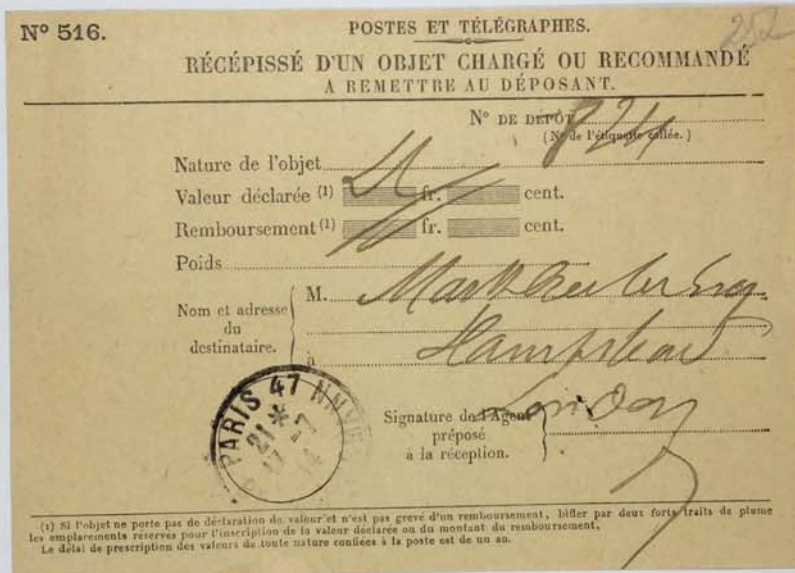 N° 516.
252
POSTES ET TÉLÉGRAPHES.
RÉCÉPISSÉ D'UN OBJET CHARGÉ OU RECOMMANDÉ
A REMETTRE AU DÉPOSANT.
N° DE DÉPÔT 824
(N° de l'étiquette collée.)
Nature de l'objet
Valeur déclarée (1) fr. cent.
Remboursement (1) fr. cent.
Poids
Nom et adresse du destinataire.
M. Mark
à Hampstead
London
Signature de l'Agent
préposé
à la réception.
PARIS 47
21 *
(1) Si l'objet ne porte pas de déclaration de valeur et n'est pas grevé d'un remboursement, biffer par deux forts traits de plume
les emplacements réservés pour l'inscription de la valeur déclarée ou du montant du remboursement.
Le délai de prescription des valeurs de toute nature confiées à la poste est de un an.